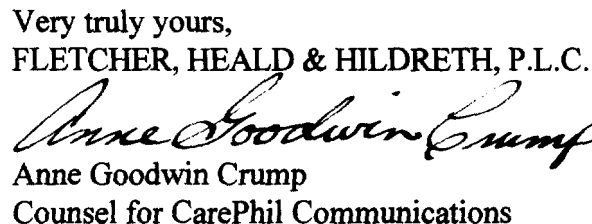 Very truly yours,
FLETCHER, HEALD & HILDRETH, P.L.C.
Anne Goodwin Crump
Anne Goodwin Crump
Counsel for CarePhil Communications